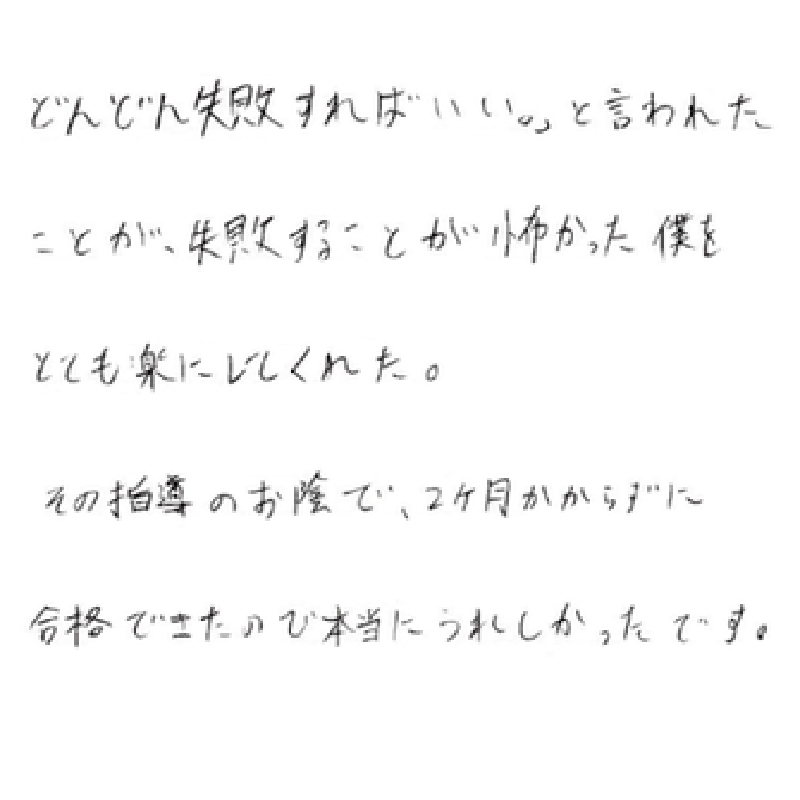 どんどん失敗すればいい。」と言われた
ことが、失敗することが怖かった僕を
とても楽にしてくれた。
その指導のお陰で、2ケ月かからずに
合格できたので本当にうれしかったです。